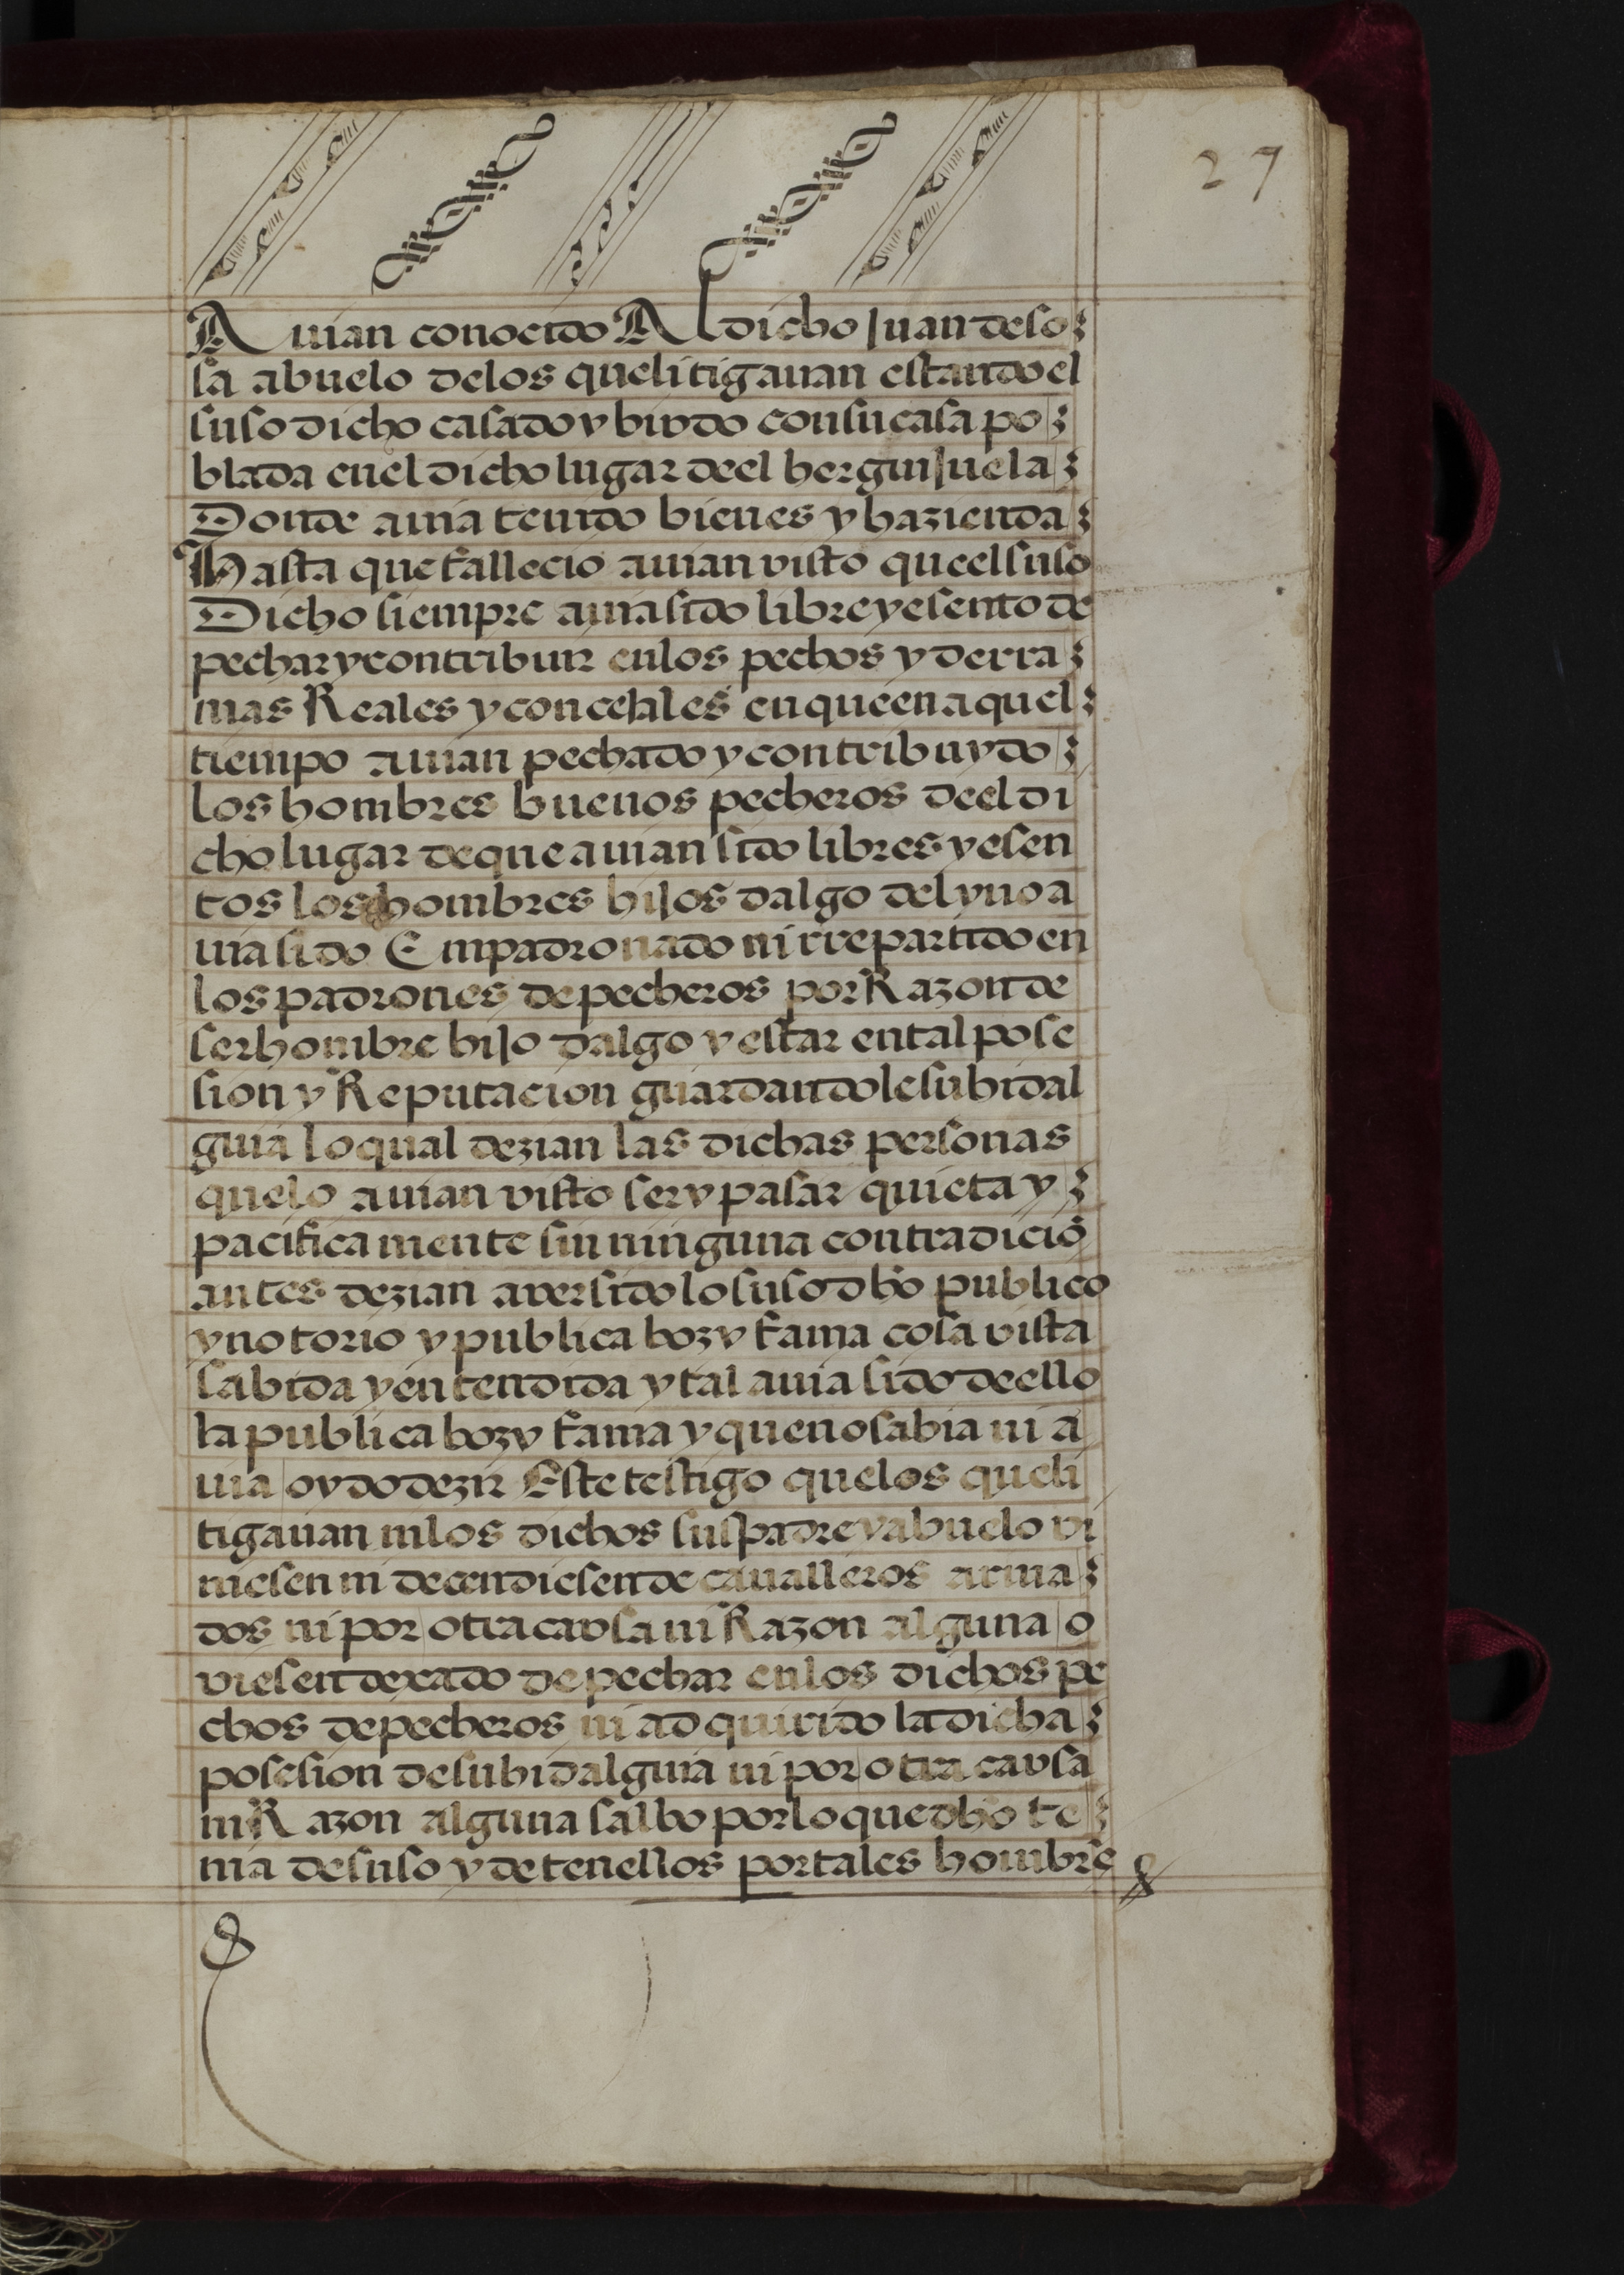 27
Auian conocido Al dicho Juan de so
sa abuelo delos que litigauan estando el
suso dicho casado y biudo con su casa po
blada en el dicho lugar de el herguijuela
Donde auia tenido bienes y hazienda
Hasta que fallecio auian visto que el suso
Dicho siempre auia sido libre y esento de
pechar y contribuir en los pechos y derra
mas Reales y concejales en que en aquel
tiempo auian pechado y contribuydo
los hombres buenos pecheros de el di
cho lugar de que auian sido libres y esen
tos los hombres hijos dalgo del y no a
uia sido Empadronado ni rrepartido en
los padrones de pecheros por Razon de
ser hombre hijo dalgo y estar en tal pose
sion y Reputacion guardandole su hidal
guia lo qual dezian las dichas personas
que lo auian visto ser y pasar quieta y
pacifica mente sin ninguna contradiciō
antes dezian aver sido lo suso dho publico
y notorio y publica boz y fama cosa vista
sabida y entendida y tal auia sido de ello
la publica boz y fama y que no sabia ni a
uia oydo dezir Este testigo que los que li
tigauan ni los dichos su padre y abuelo vi
niesen ni decendiesen de caualleros arma
dos ni por otra cavsa ni Razon alguna o
viesen dexado de pechar en los dichos pe
chos de pecheros ni adquirido la dicha
posesion de su hidalguia ni por otra cavsa
ni Razon alguna salbo por lo que dho te
nia de suso y de tenellos por tales hombre